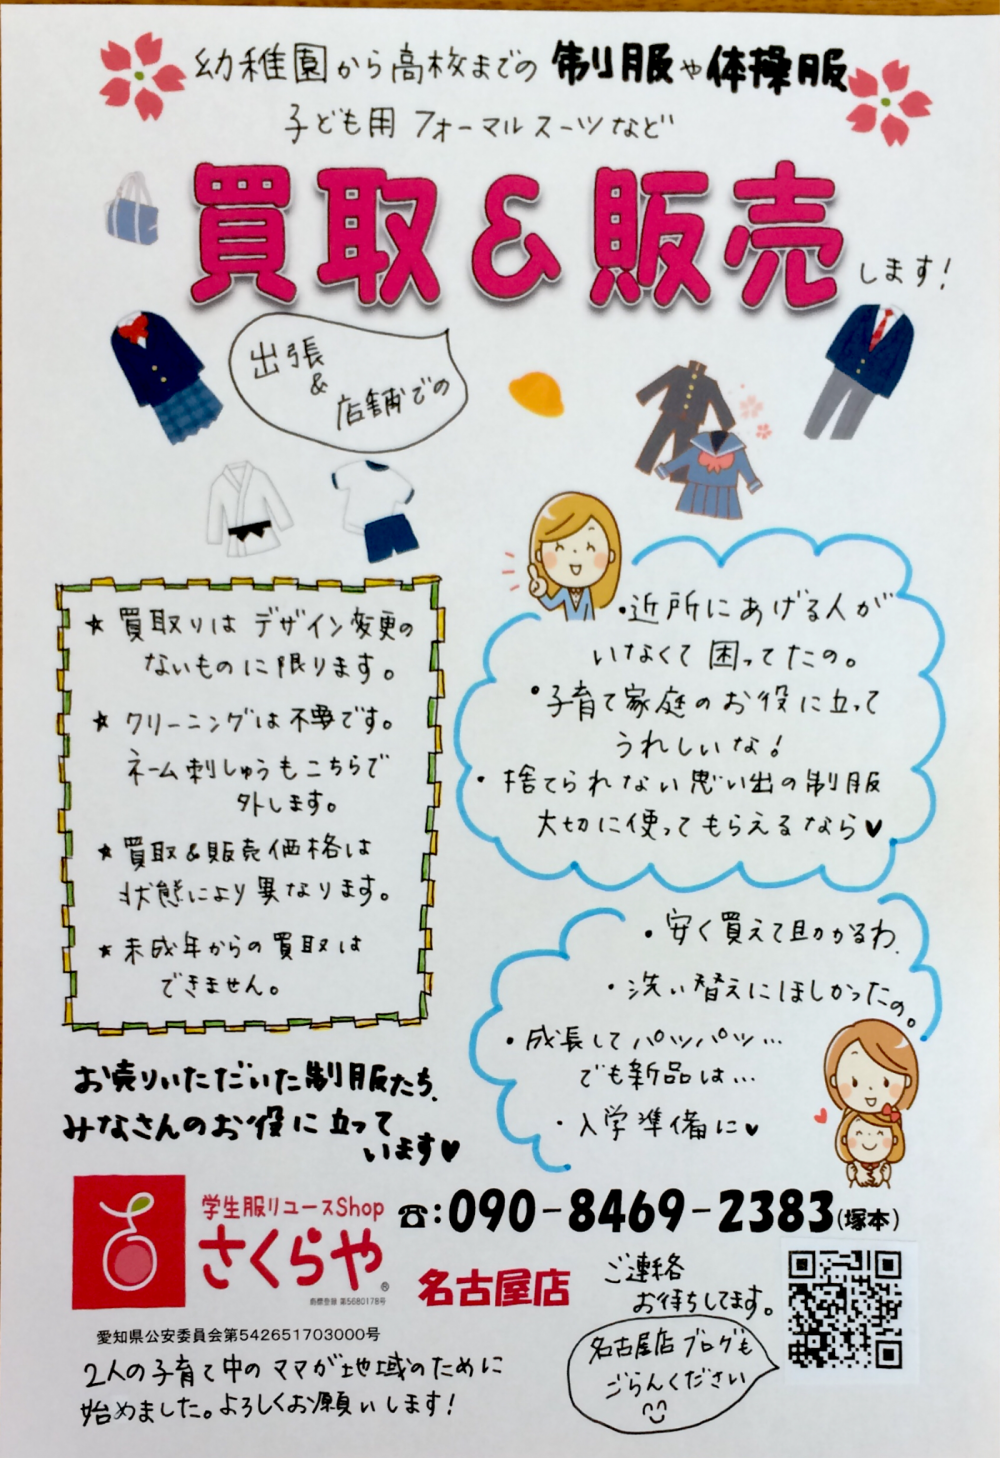 幼稚園から高校までの制服や体操服
子ども用フォーマルスーツなど
買取&販売
します!
出張
&
店舗での
★買取りはデザイン変更の
ないものに限ります。
★クリーニングは不要です。
ネーム刺しゅうもこちらで
外します。
★買取&販売価格は
状態により異なります。
★未成年からの買取は
できません。
・近所にあげる人が
いなくて困ってたの。
・子育て家庭のお役に立って
うれしいな!
・捨てられない思い出の制服
大切に使ってもらえるなら♥
・安く買えて助かるわ。
・洗い替えにほしかったの。
・成長してパツパツ…
でも新品は…
・入学準備に♥
お売りいただいた制服たち、
みなさんのお役に立って
います♥
学生服リユースShop
さくらや®
商標登録 第5680178号
名古屋店
☎:090-8469-2383(塚本)
ご連絡
お待ちしてます。
愛知県公安委員会第542651703000号
2人の子育て中のママが地域のために
始めました。よろしくお願いします!
名古屋店ブログも
ごらんください